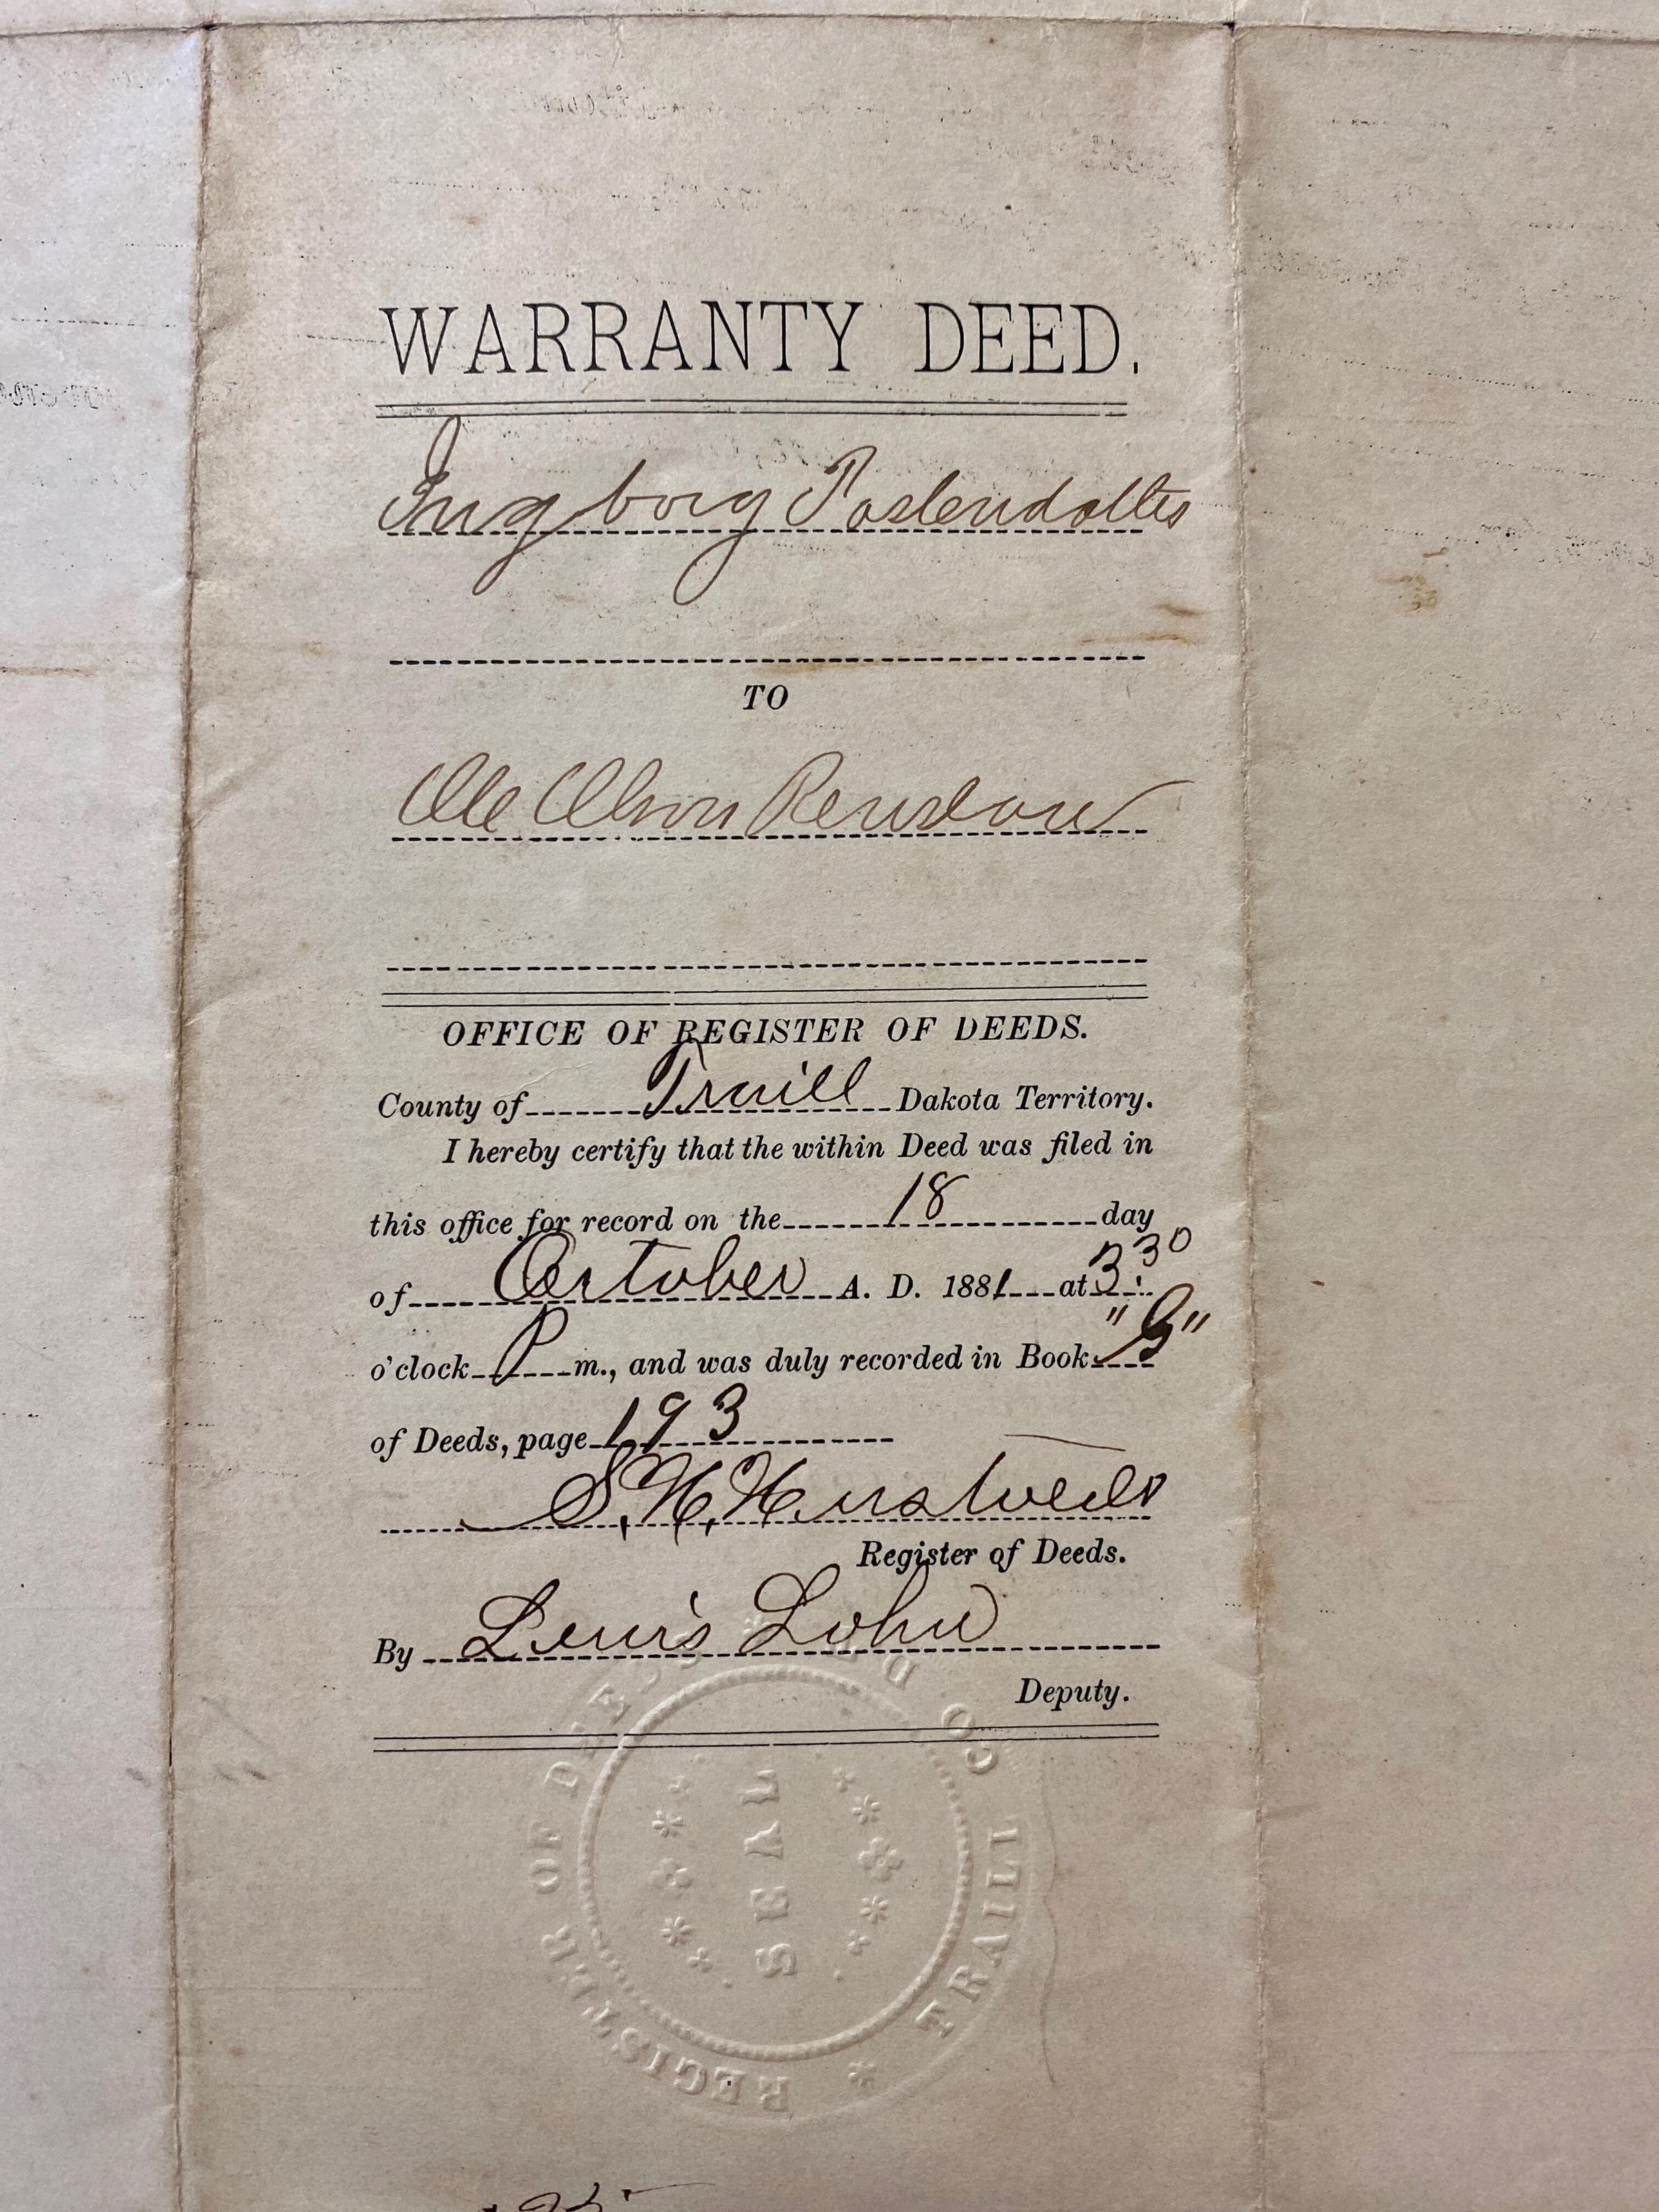 WARRANTY DEED.
Ingborg Paslendattes
TO
Ole Olson Rendow
OFFICE OF REGISTER OF DEEDS.
County of Traill Dakota Territory.
I hereby certify that the within Deed was filed in
this office for record on the 18 day
of October A. D. 1881 at 3:30
o'clock P m., and was duly recorded in Book "G"
of Deeds, page 193
S. H.
Register of Deeds.
By Lewis Lohn
Deputy.
REGISTER OF DEEDS
TRAILL CO
SEAL